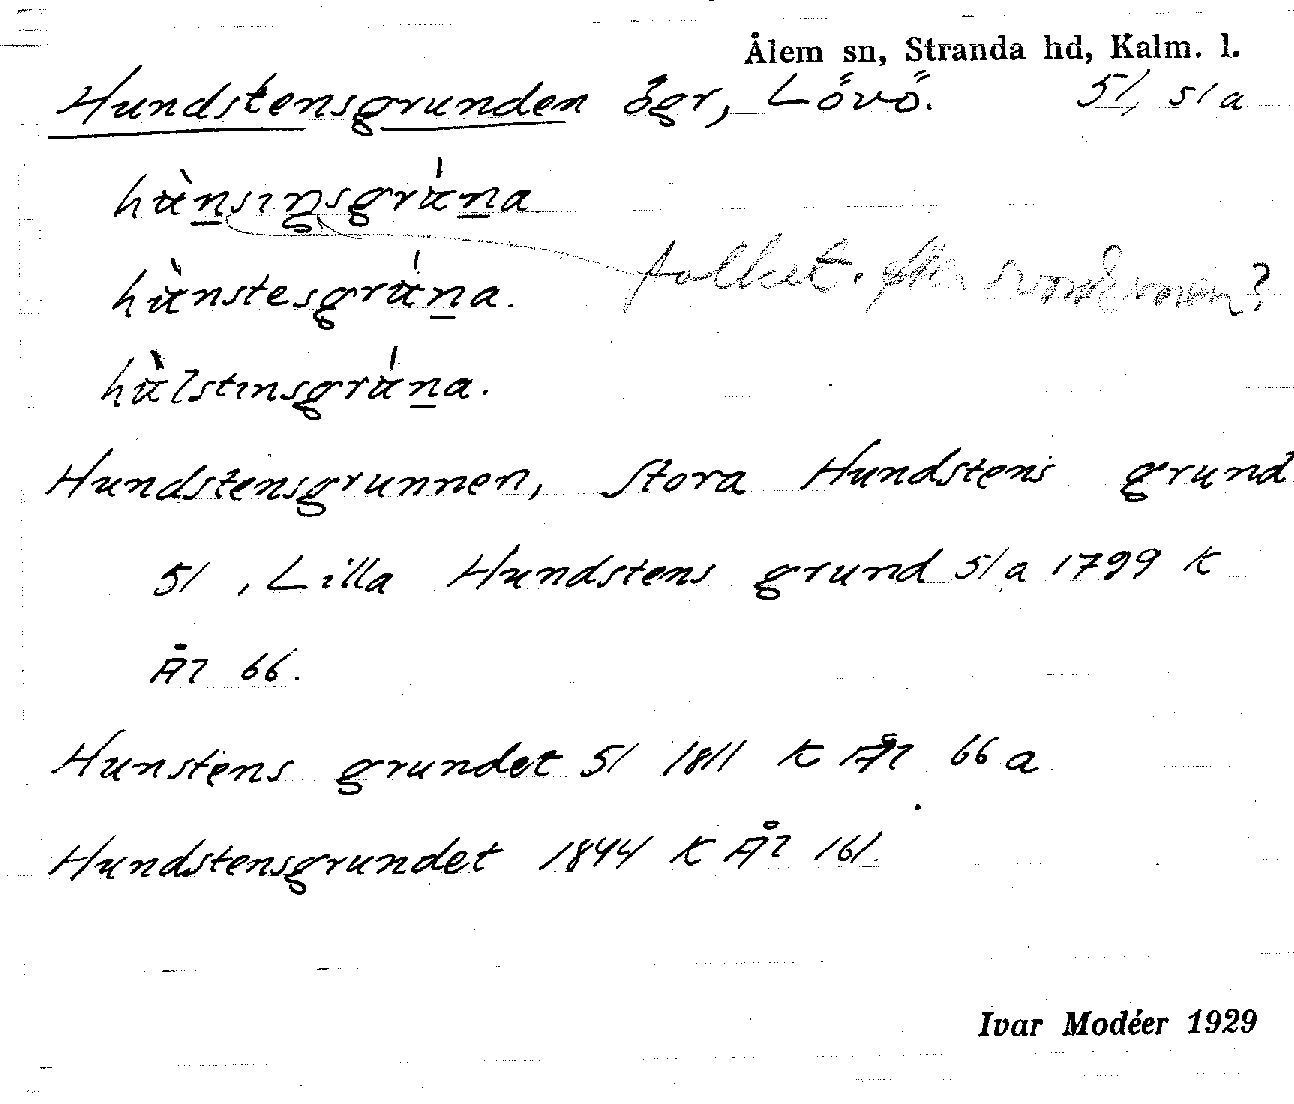 Ålem sn, Stranda hd, Kalm. l.
Hundstensgrunden ögr, Lövö. 51, 51a
hʉ̀nsıŋsgrʉ́na
hʉ̀nstesgrʉ́na.
tolket. efter
hʉ̀lstınsgrʉ́na.
Hundstensgrunnen, Stora Hundstens grund
51, Lilla Hundstens grund 51a 1799 K
Ål 66.
Hunstens grundet 51 1811 K Ål 66a
Hundstensgrundet 1844 K Ål 161
Ivar Modéer 1929